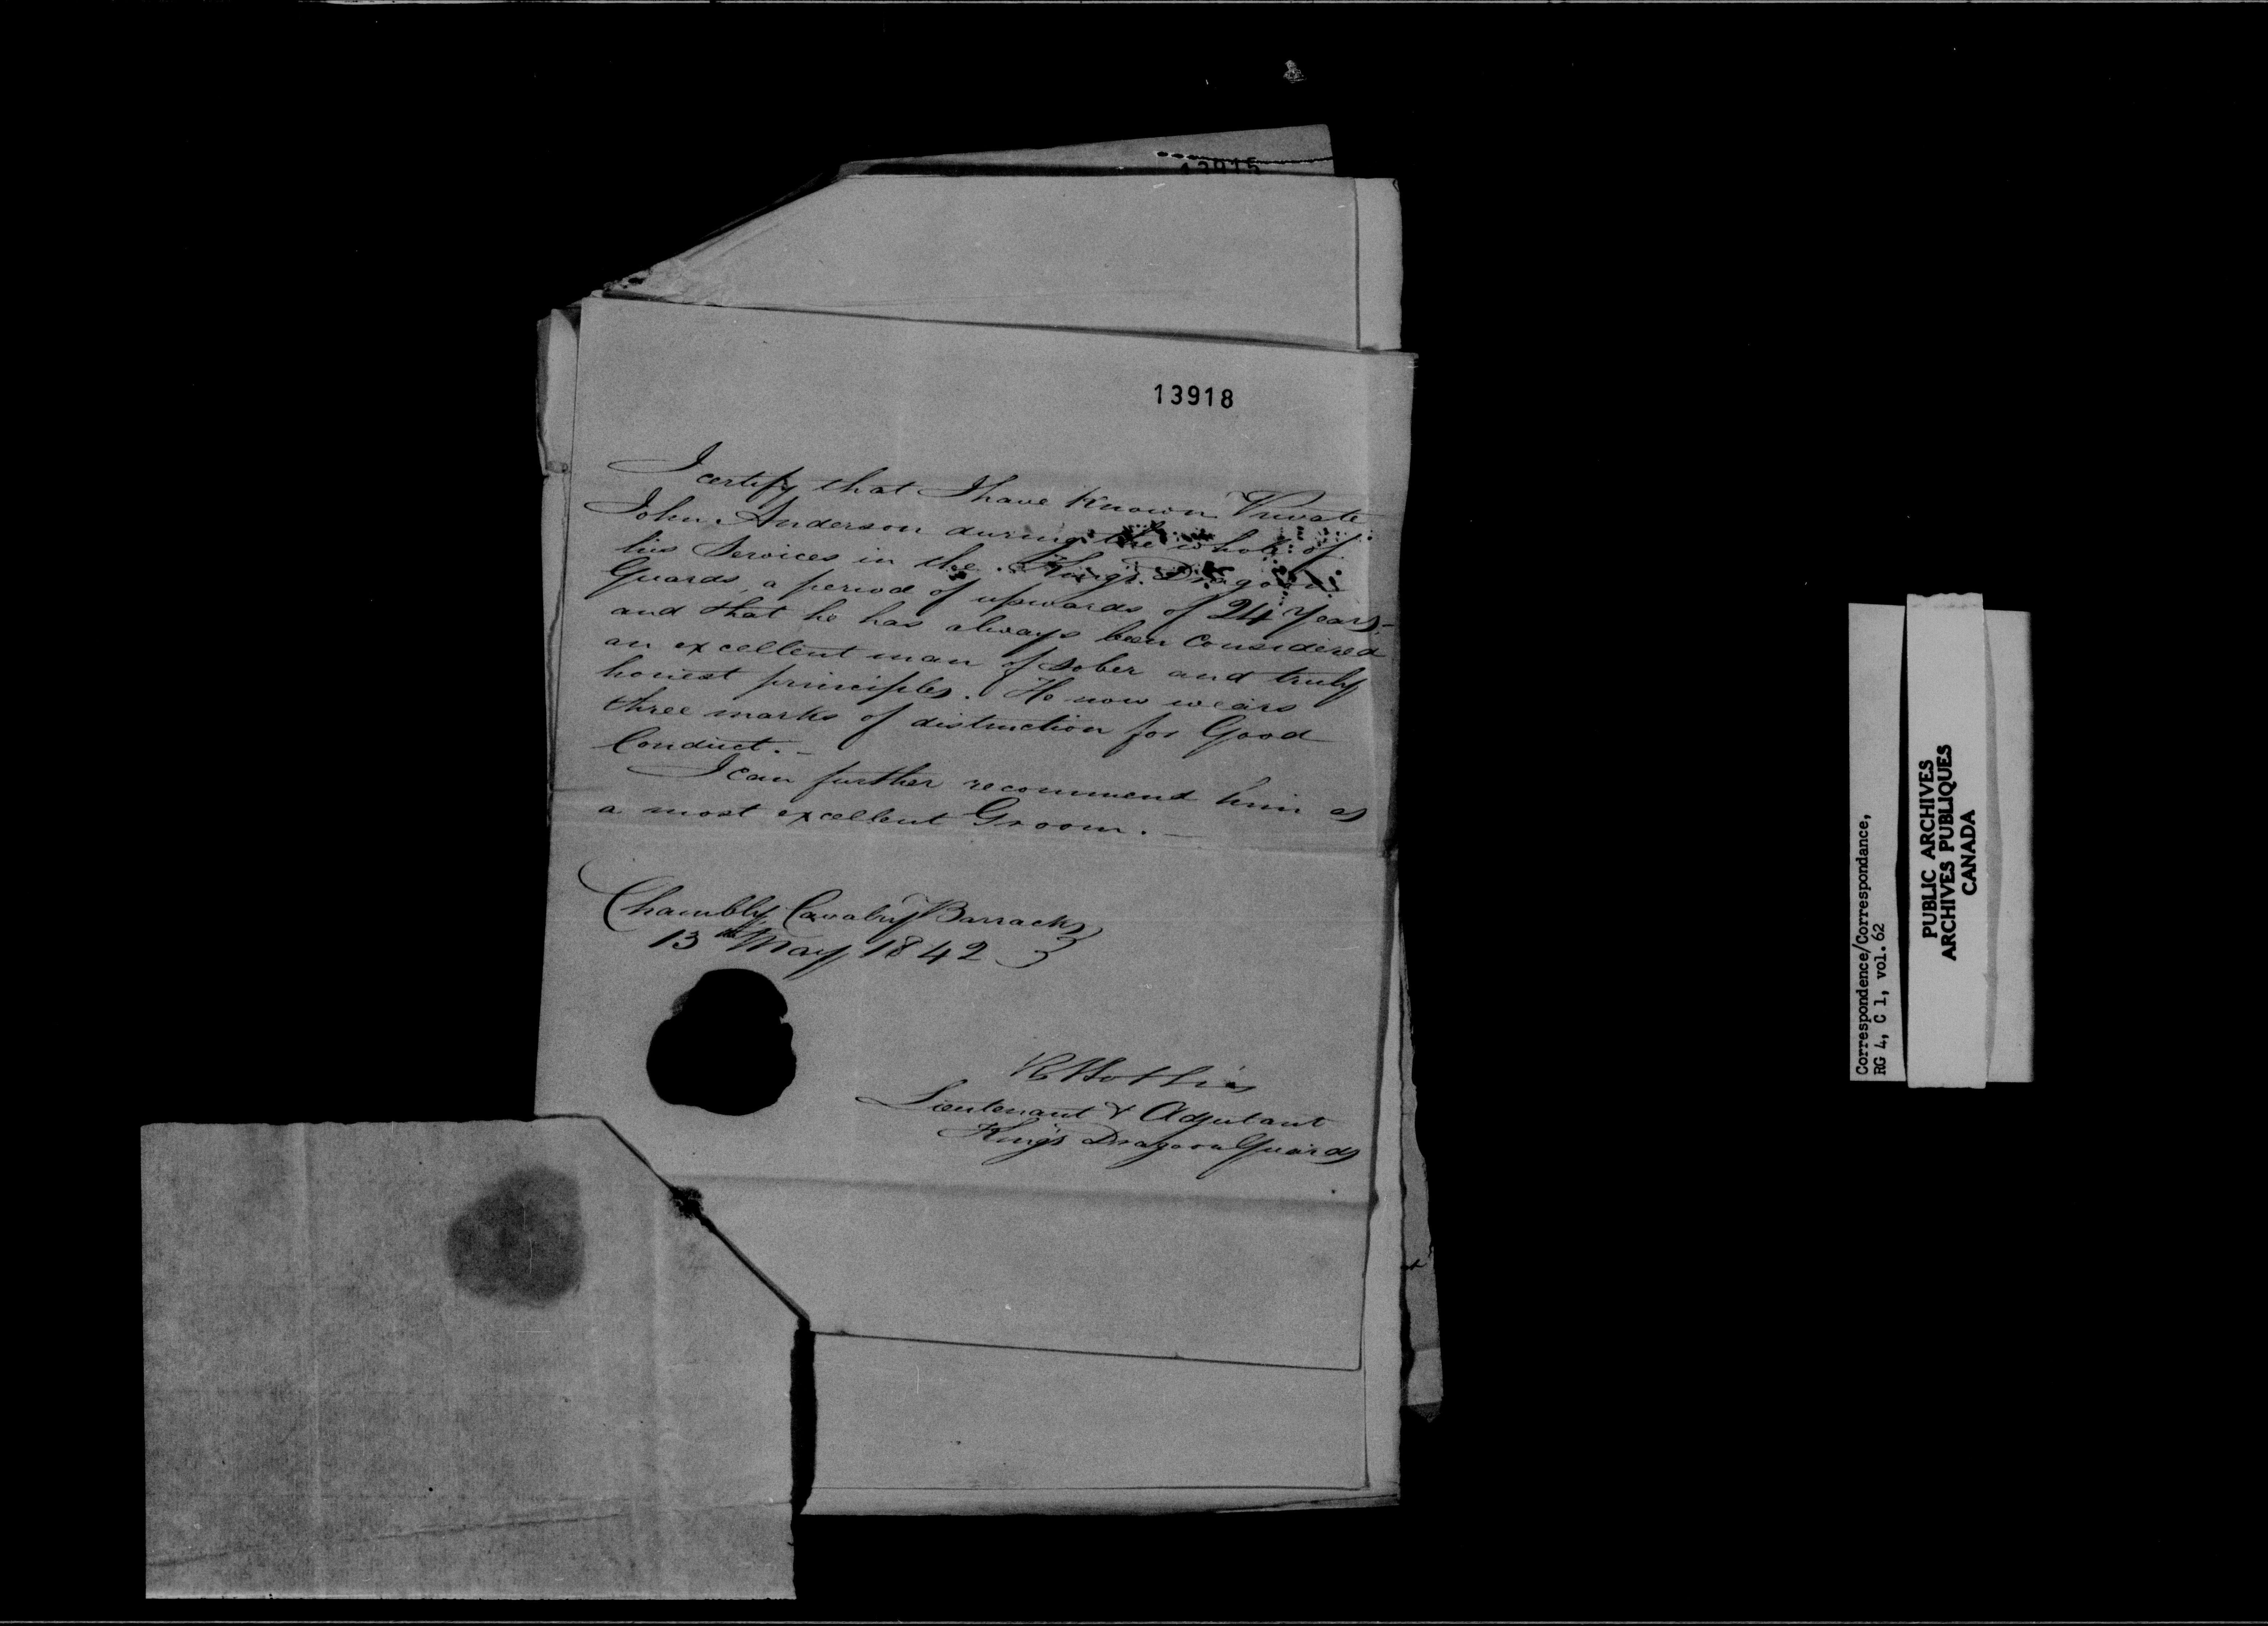 13915
13918
I certify that I have Known Private
John Anderson during the whole of
his Services in the King's Dragoon
Guards, a period of upwards of 24 Years-
and that he has always been Considered
an excellent man of sober and truly
honest principles. He now wears
three marks of distinction for Good
Conduct. -
I can further recommend him as
a most excellent Groom. -
Chambly Cavalry Barracks
13th May 1842
Lieutenant & Adjutant
King's Dragoon Guards
Correspondence/Correspondance,
RG 4, C 1, vol. 62
PUBLIC ARCHIVES
ARCHIVES PUBLIQUES
CANADA